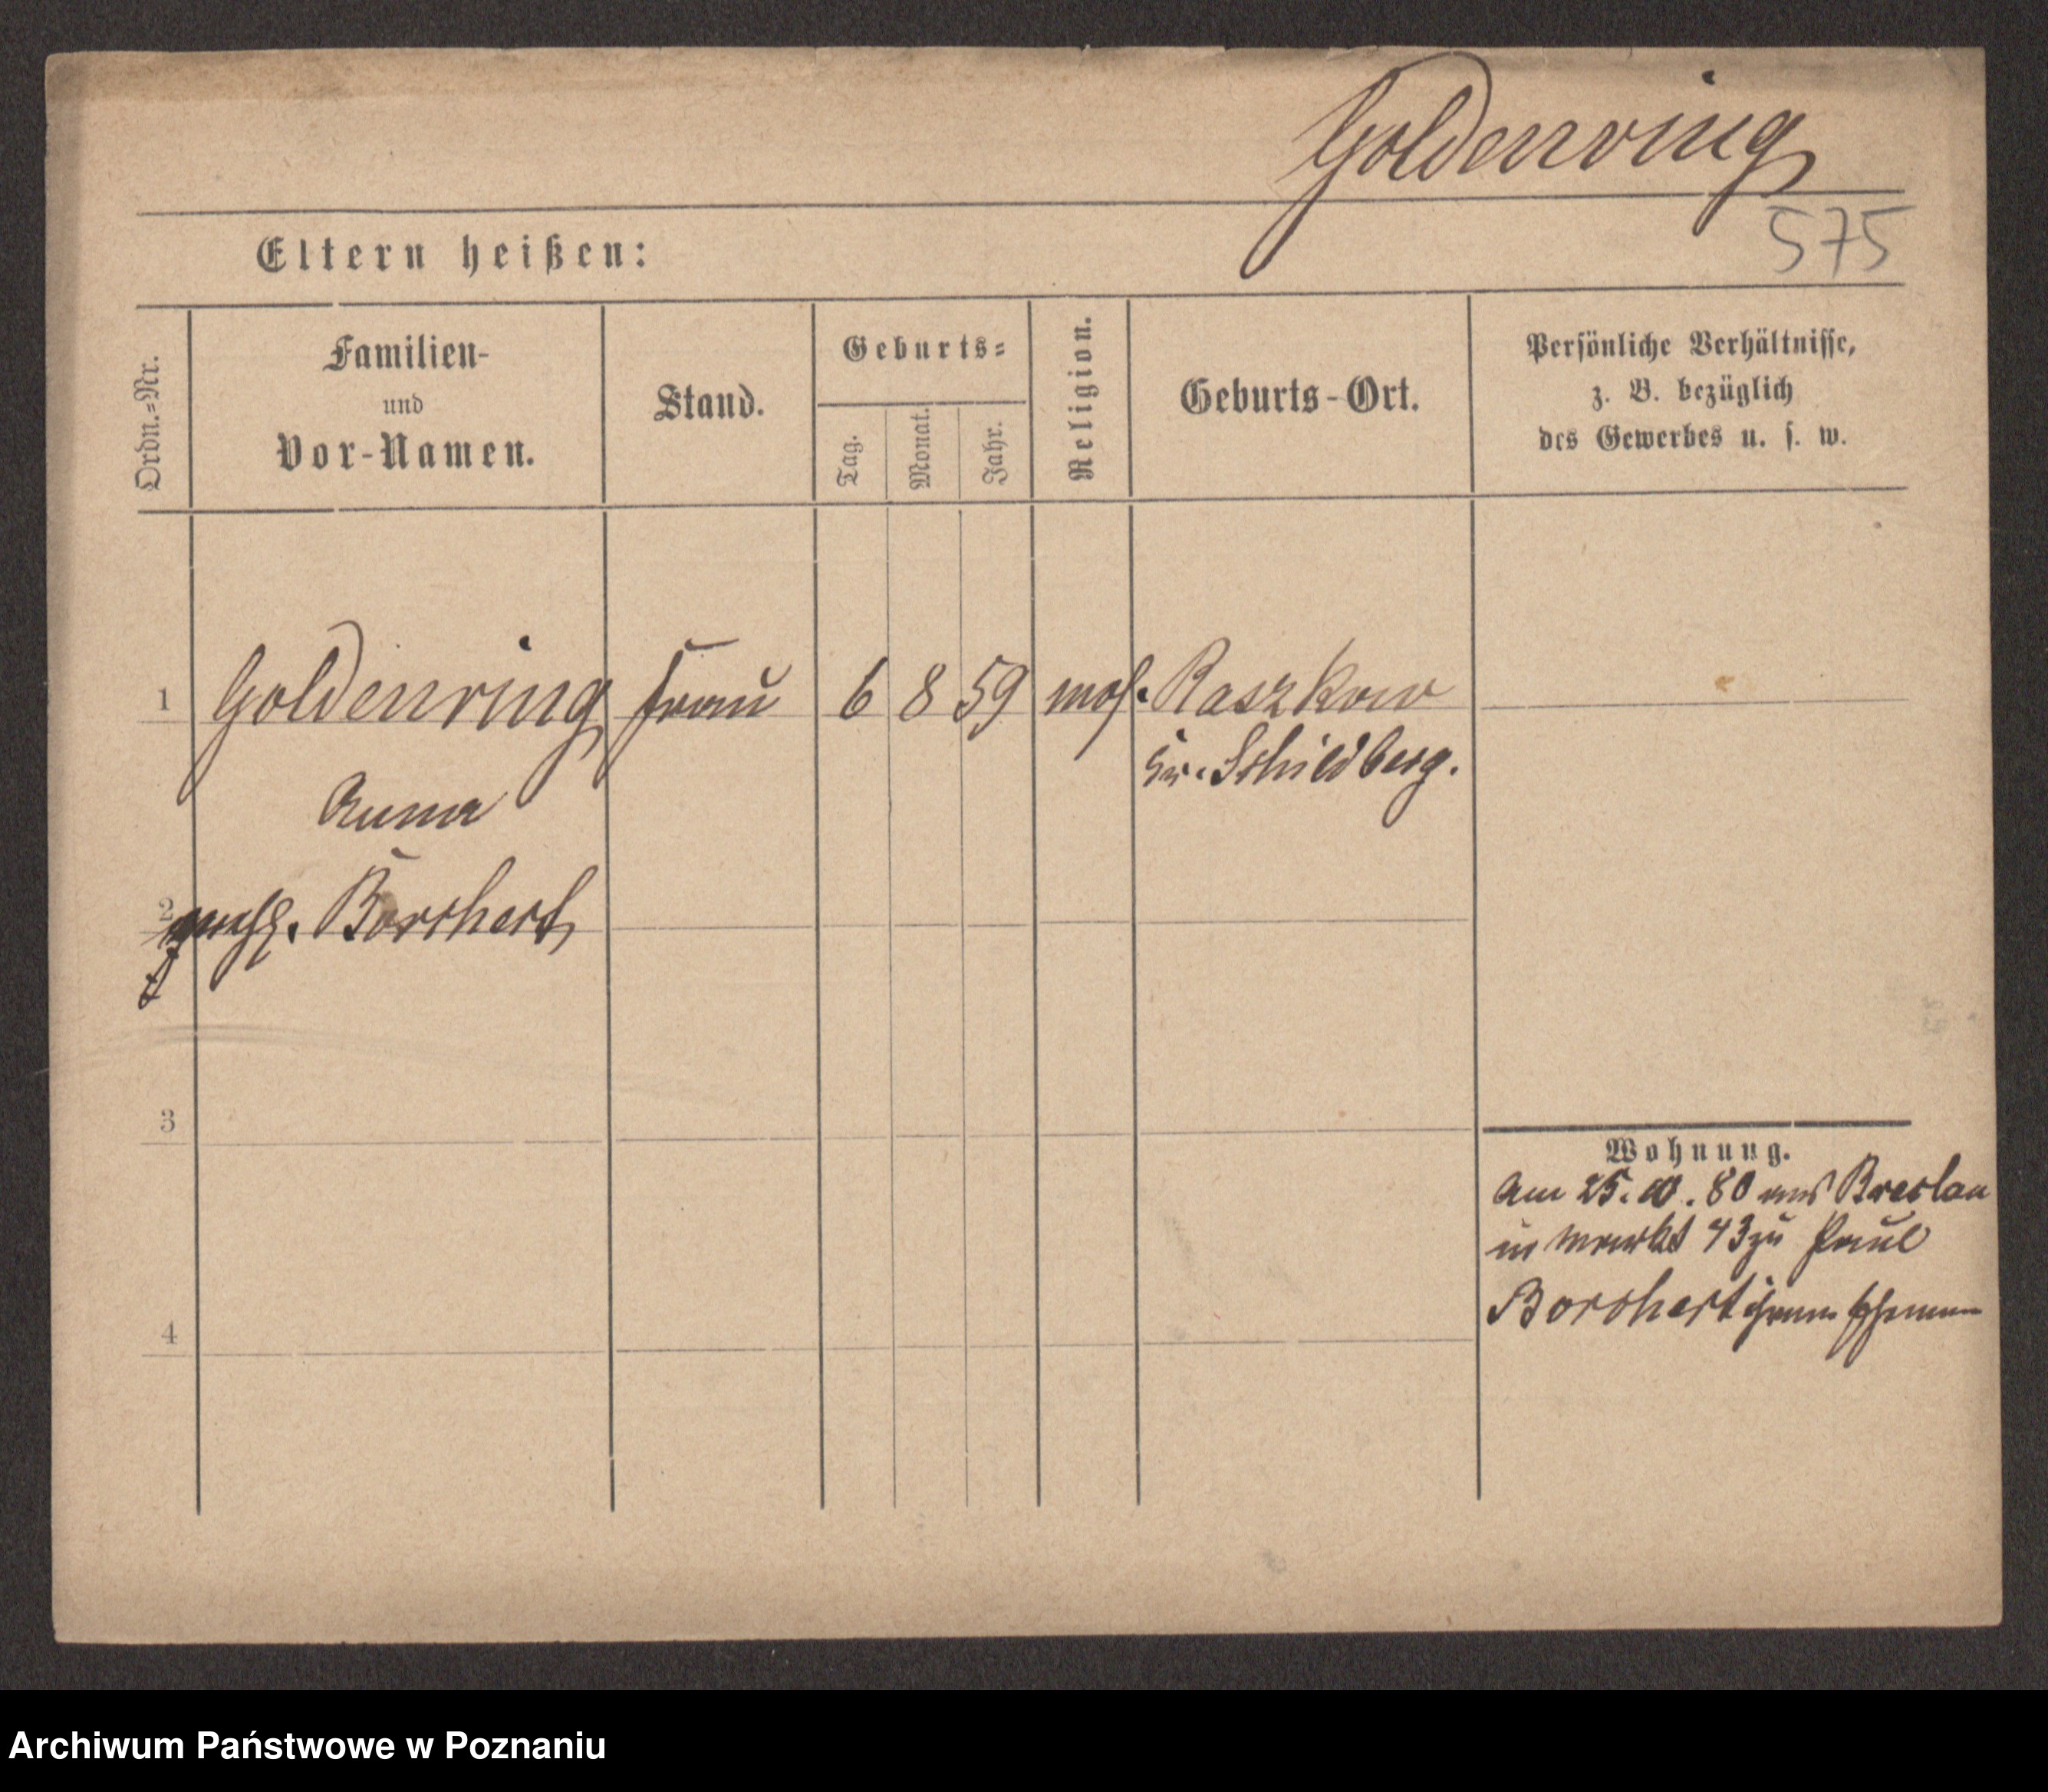 Goldenring
575
Eltern heißen:
Ordn.=Nr.
Familien-
und
Vor-Namen.
Stand.
Geburts=
Tag.
Monat.
Jahr.
Religion.
Geburts-Ort.
Persönliche Verhältnisse,
z. B. bezüglich
des Gewerbes u. s. w.
1 Goldenring Frau 6 8 59 mos. Raszkow
Kr. Schildberg.
Anna
2
gesch. Borchert
3
Wohnung.
Am 25. 80 aus Breslau
in Markt 43 zu Paul
Borchert ihrem Ehemann
4
Archiwum Państwowe w Poznaniu